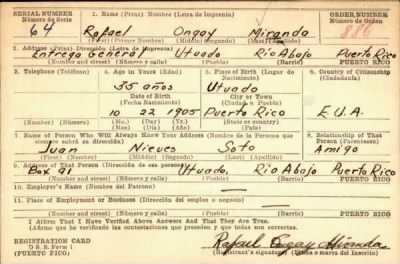 SERIAL NUMBER 1. Name (Print) Nombre (Letra de Imprenta) ORDER NUMBER
Número de Serie Número de Orden
64 Rafael Ongay Miranda
(First) Primer Nombre (Middle) Segundo Nombre (Last) Apellido
2. Address (Print) Dirección (Letra de Imprenta)
Entrega General Utuado Rio Abajo Puerto Rico
(Number and street) (Número y calle) PUERTO RICO
3. Telephone (Teléfono) 4. Age in Years (Edad) 5. Place of Birth (Lugar de Nacimiento) 6. Country of Citizenship (Ciudadanía)
35 años Utuado
Date of Birth City or Town
(Fecha Nacimiento) (Ciudad o Pueblo)
10 22 1905 Puerto Rico E.U.A.
(Mo.) (Day) (Yr.) State or country
7. Name of Person Who Will Always Know Your Address (Nombre de la Persona que siempre sabrá su dirección) 8. Relationship of That Person (Parentesco)
Juan Nieves Soto Amigo
(First) (Nombre) (Middle) (Segundo) (Last) (Apellido)
9. Address of That Person (Dirección de esa persona)
Box 91 Utuado, Rio Abajo Puerto Rico
(Number and street) (Número y calle) PUERTO RICO
10. Employer's Name (Nombre del Patrono) —
11. Place of Employment or Business (Dirección del empleo o negocio)
—
(Number and street) (Número y calle) PUERTO RICO
I Affirm That I Have Verified Above Answers And That They Are True.
(Afirmo que he verificado las contestaciones que preceden y que todas son correctas.
REGISTRATION CARD Rafael Ongay Miranda
D S S. Form 1 (Registrant's signature) (Firma o marca del Inscrito)
(PUERTO RICO)